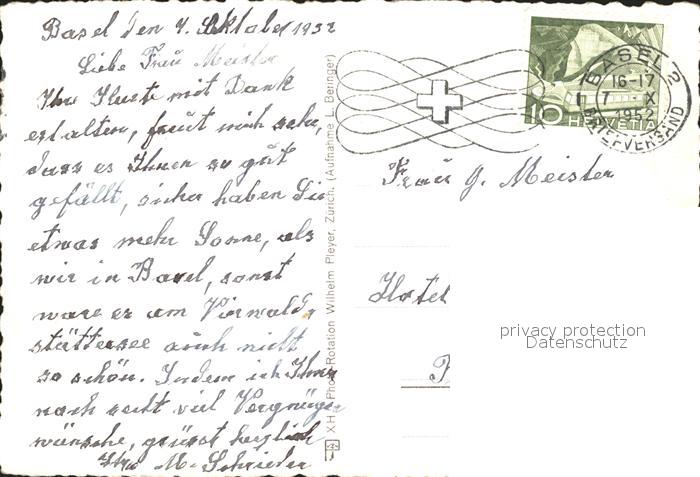 Basel den 7. Oktober 1952
Liebe Frau Meister
Ihre Karte mit Dank
erhalten, freut mich sehr,
dass es Ihnen so gut
gefällt, sicher haben Sie
etwas mehr Sonne, als
wir in Basel, sonst
wäre es am Vierwald-
stättersee auch nicht
so schön. Indem ich Ihnen
noch recht viel Vergnügen
wünsche, grüsst herzlich
Ihre M. Schrieder
XH Photo-Rotation Wilhelm Pleyer, Zürich. (Aufnahme L. Beringer)
BASEL 2
16-17
7. X
1952
BRIEFVERSAND
10 HELVETIA
Frau G. Meister
Hotel
privacy protection
Datenschutz